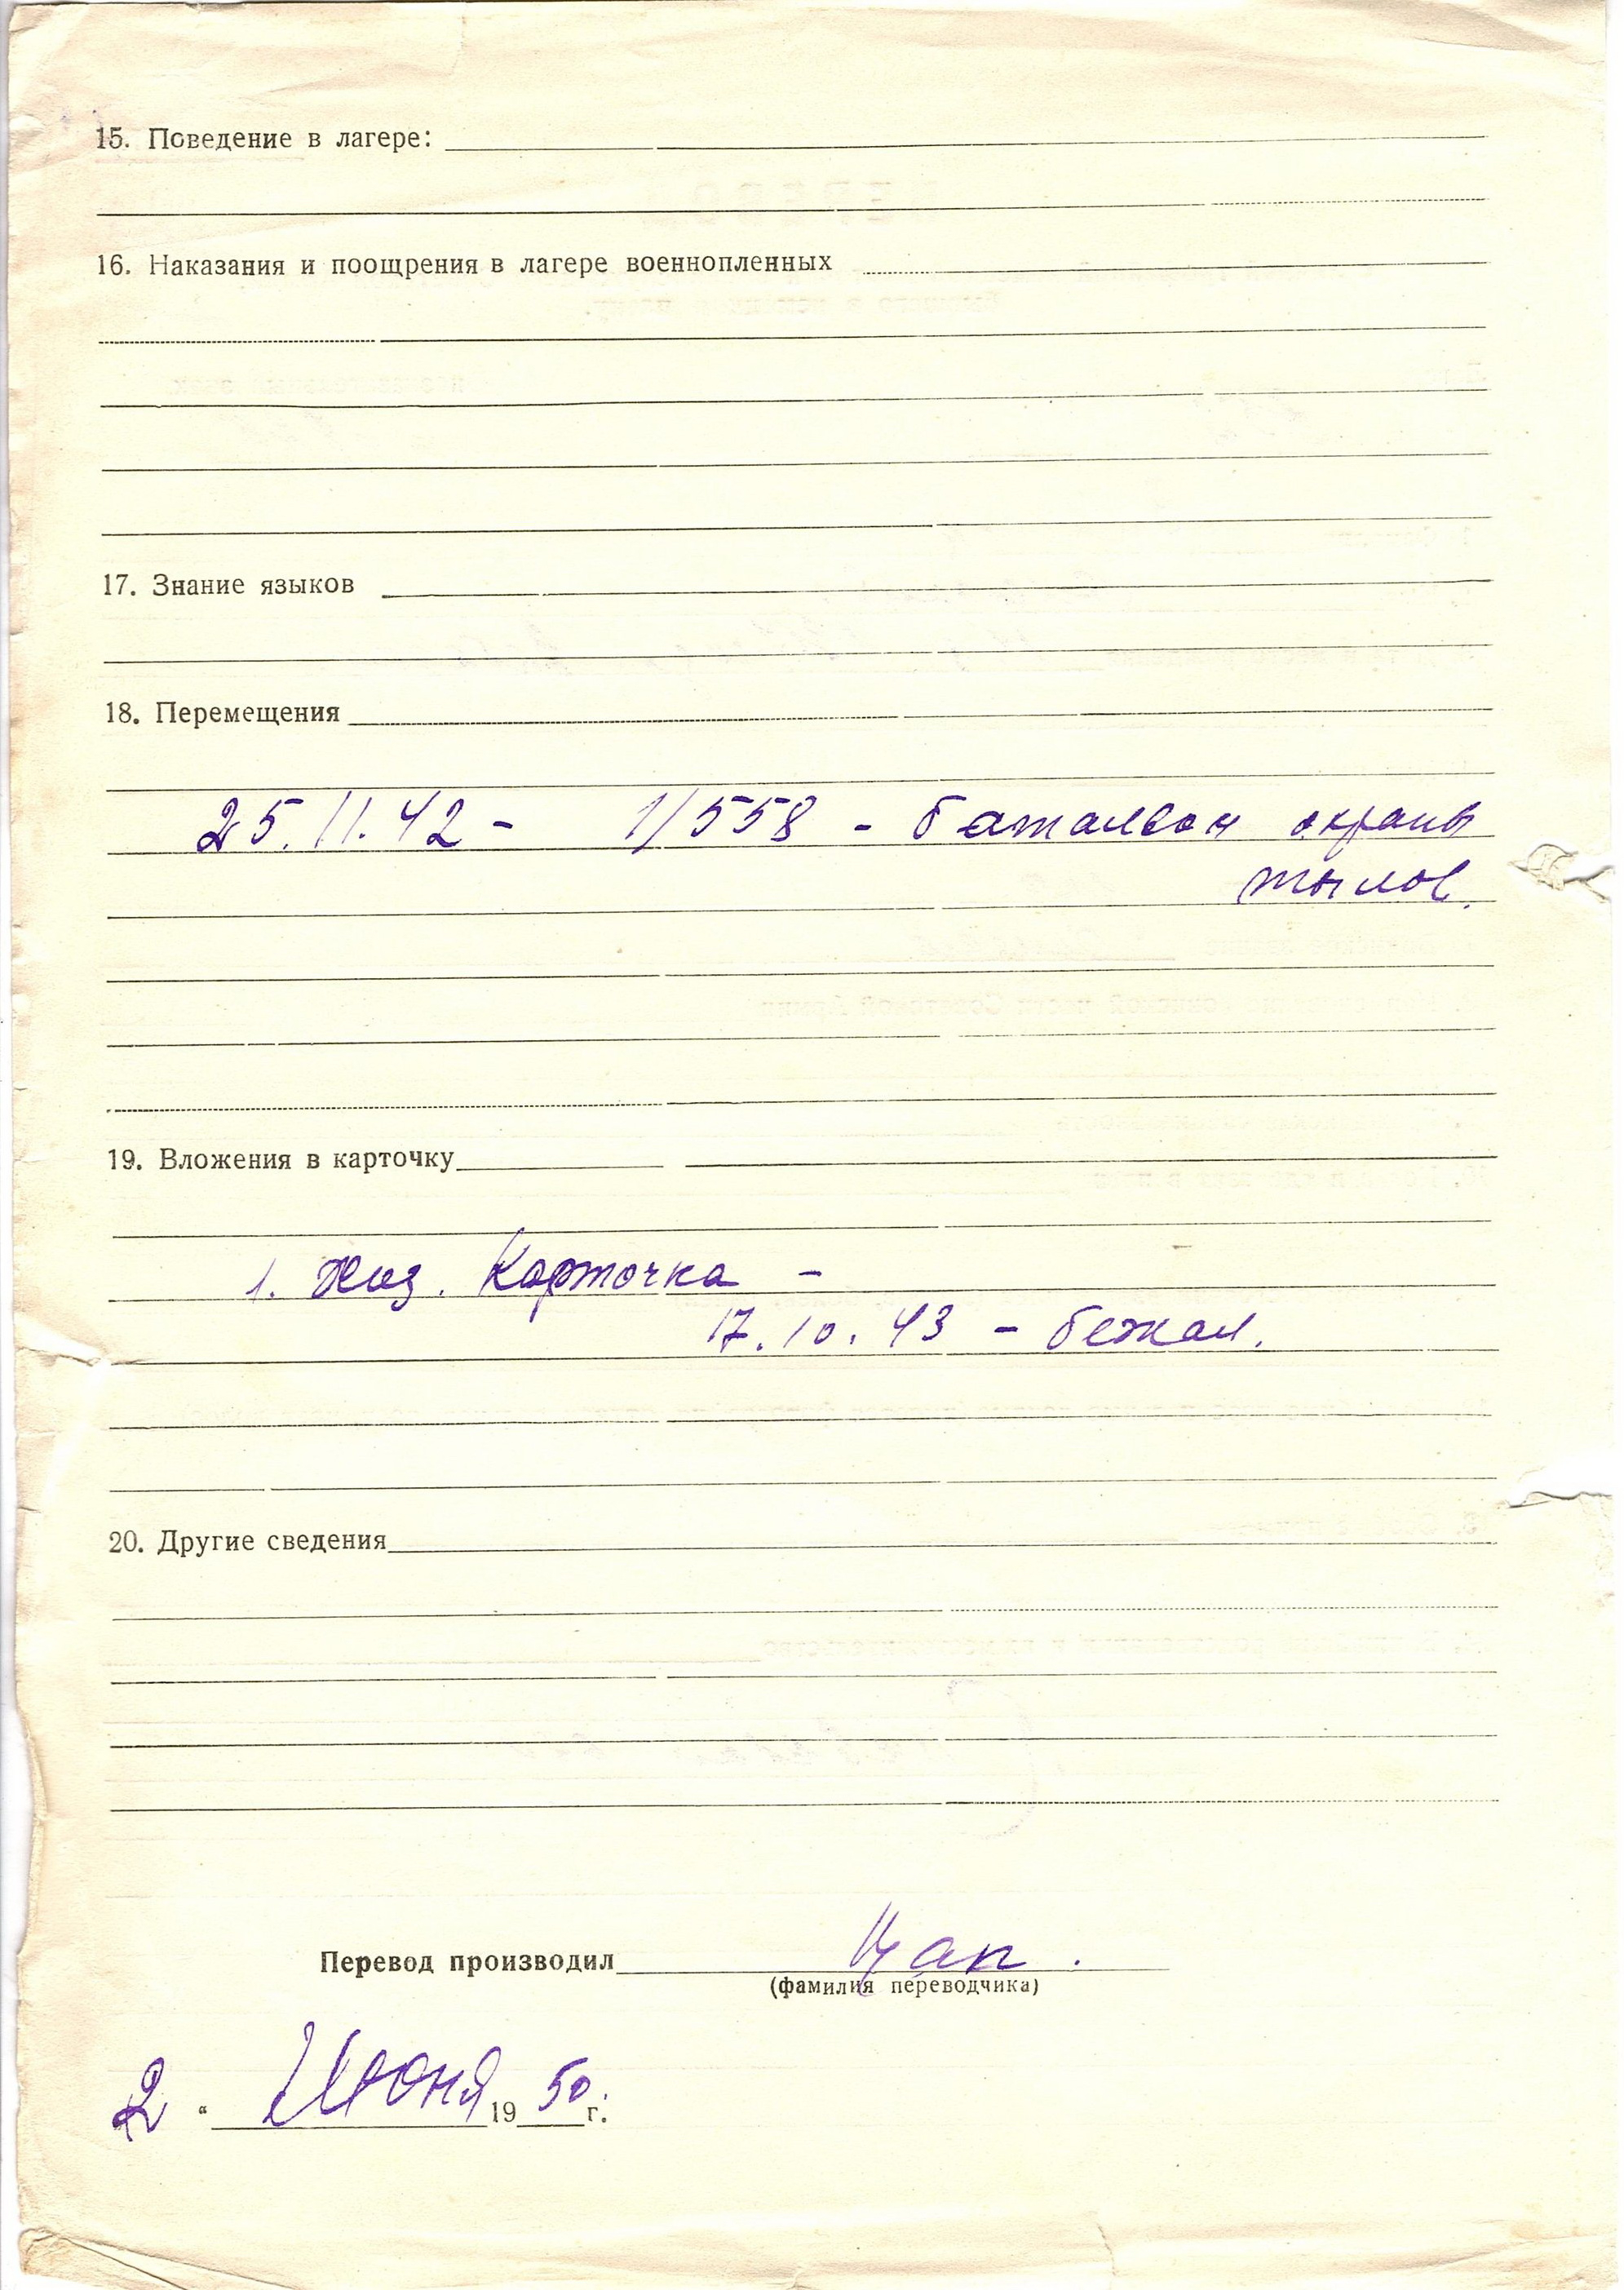 15. Поведение в лагере:
16. Наказания и поощрения в лагере военнопленных
17. Знание языков
18. Перемещения
25.11.42 - 1/558 - батальон охраны
тылов.
19. Вложения в карточку
1. Карточка -
17.10.43 - бежал.
20. Другие сведения
Перевод производил Цап.
(фамилия переводчика)
2 " Июня 1950 г.